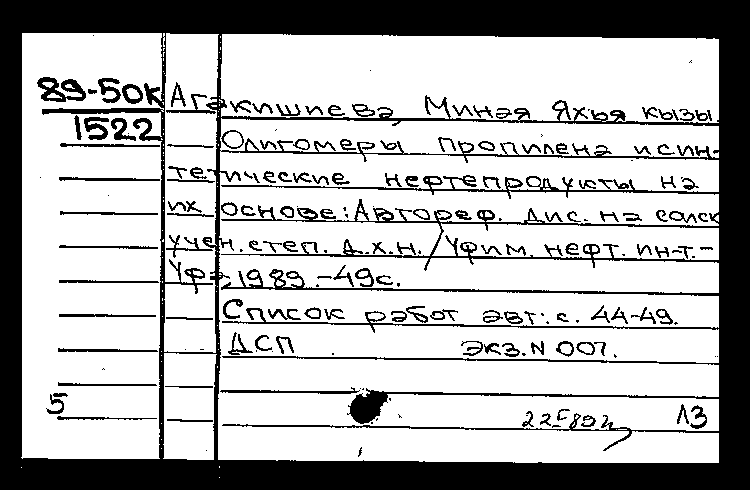 89-50К Агакишиева, Миная Яхья кызы.
1522 Олигомеры пропилена и син-
тетические нефтепродукты на
их основе: Автореф. дис. на соиск
учен. степ. д.х.н. / Уфим. нефт. ин-т.-
Уфа, 1989.-49с.
Список работ авт: с. 44-49.
ДСП экз. N 007.
5 13